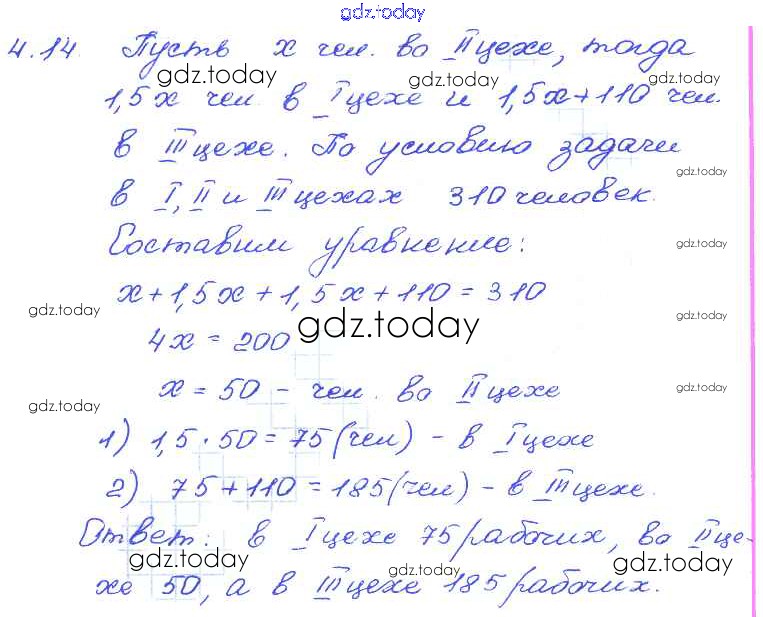 gdz.today
4.14. Пусть x чел. во II цехе, тогда
gdz.today gdz.today gdz.today
1,5x чел. в I цехе и 1,5x+110 чел.
в III цехе. По условию задачи
gdz.today
в I, II и III цехах 310 человек.
Составим уравнение:
gdz.today
x+1,5x+1,5x+110=310
gdz.today gdz.today gdz.today
4x = 200
x = 50 - чел. во II цехе
gdz.today gdz.today
1) 1,5·50=75(чел) - в I цехе
2) 75+110=185(чел) - в III цехе.
Ответ: в I цехе 75 рабочих, во II це-
gdz.today gdz.today gdz.today
хе 50, а в III цехе 185 рабочих.